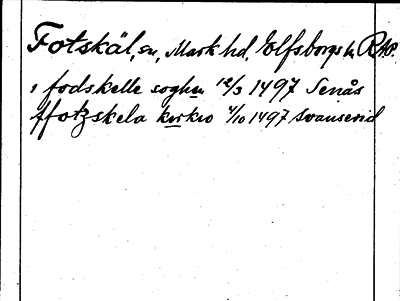 Fotskäl, sn, Mark hd, Elfsborgs l. RAP.
i fodskelle soghn 12/3 1497 Senås
ffotzskela kirkio 4/10 1497 Svansered